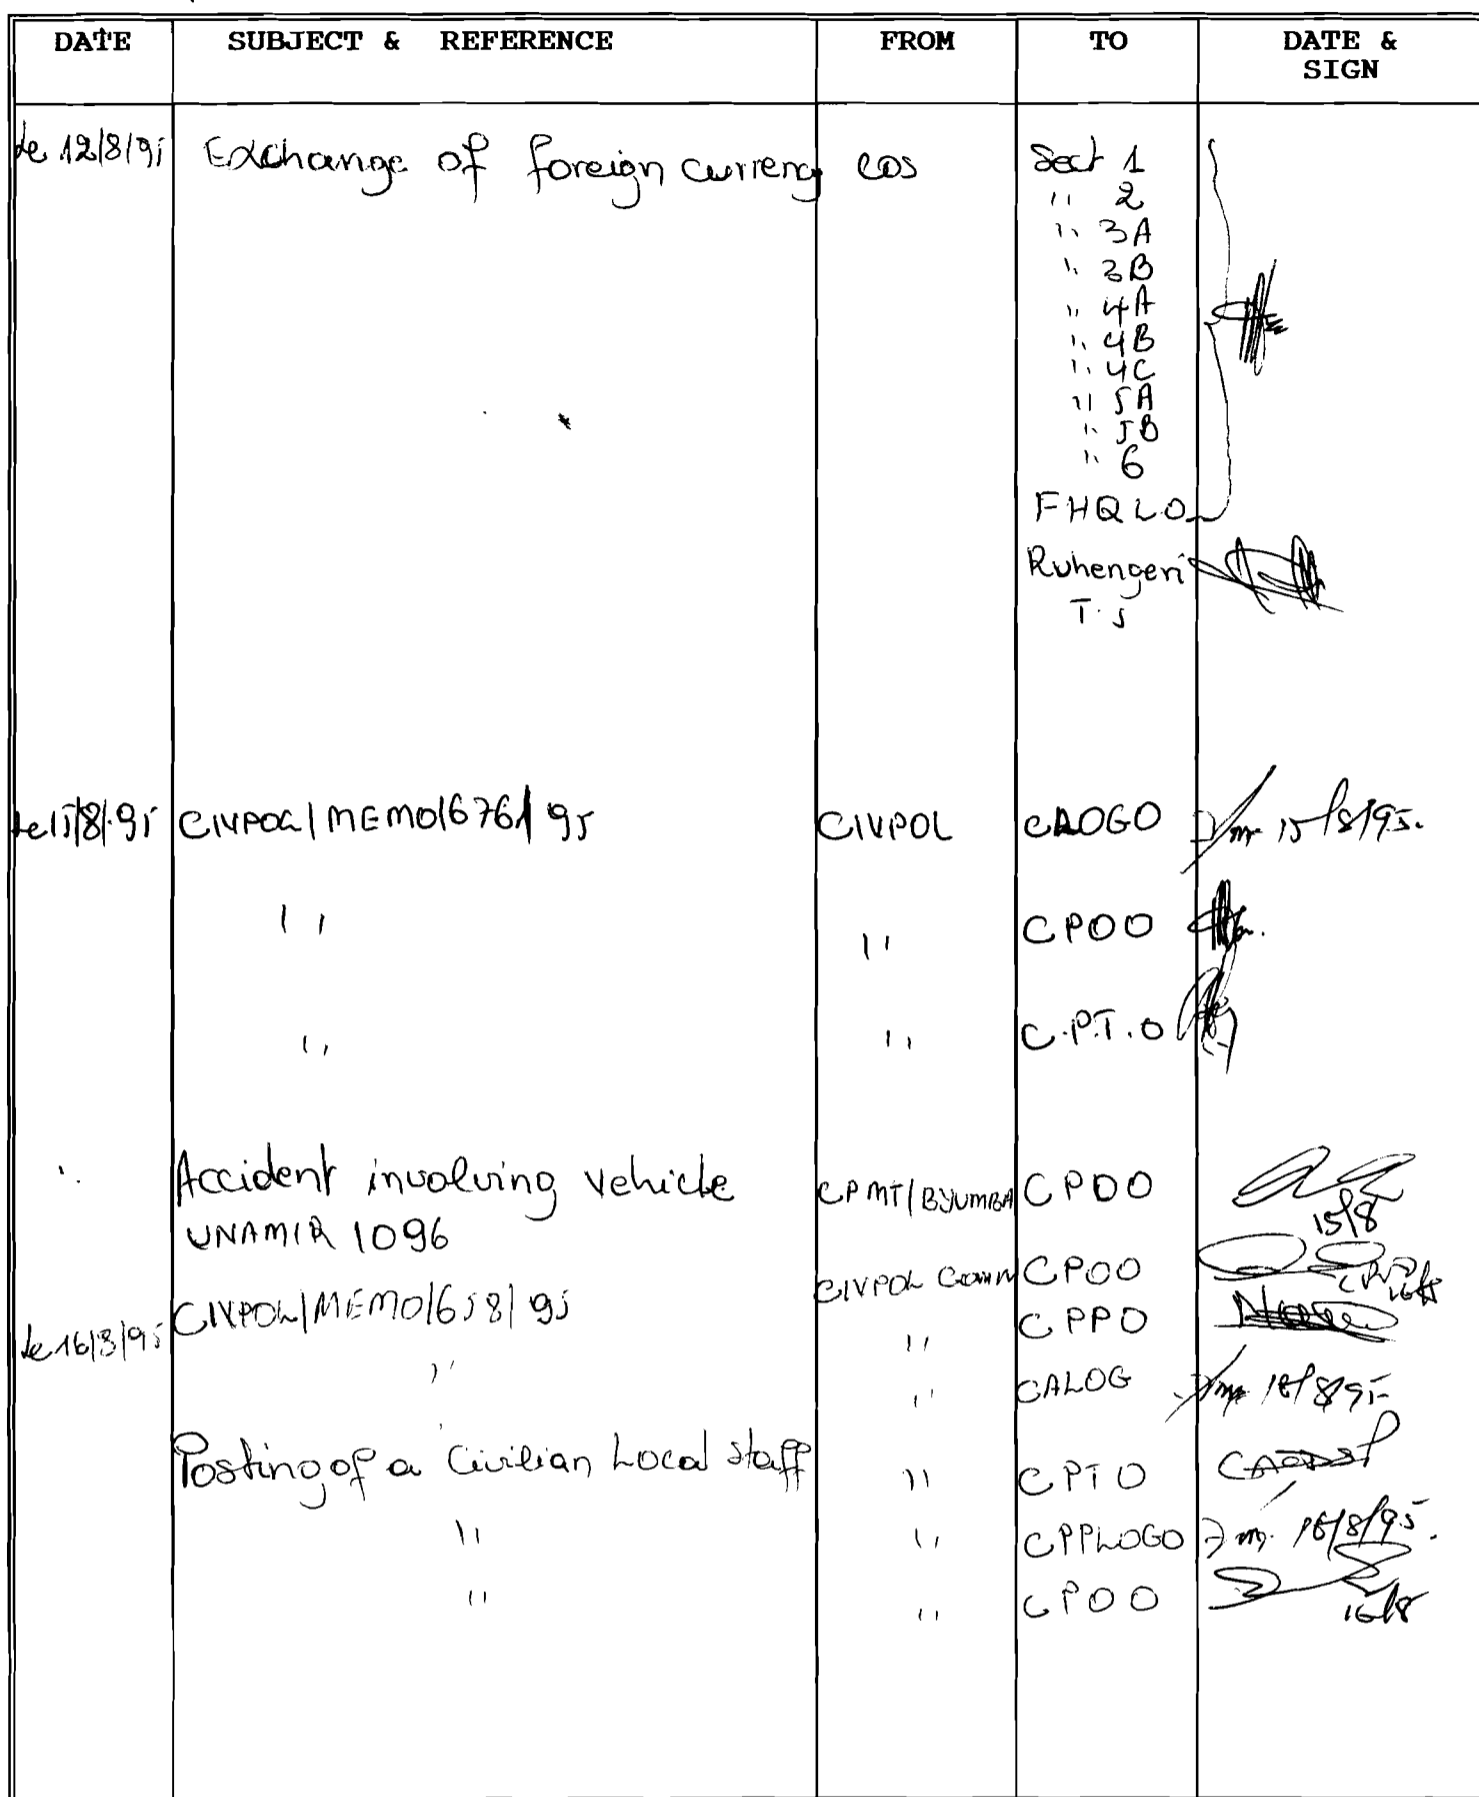 DATE SUBJECT & REFERENCE FROM TO DATE &
SIGN
le 12/8/95 Exchange of foreign currency COS Sect 1
" 2
" 3A
" 3B
" 4A
" 4B
" 4C
" 5A
" 5B
" 6
FHQLO
Ruhengeri
T.S
le 15/8/95 CIVPOL/MEMO/676/95 CIVPOL CAOGO 15/8/95.
" " CPOO
" " C.P.T.O
" Accident involving vehicle CPMT/BYUMBA CPOO
UNAMIR 1096 15/8
CIVPOL Comm CPOO 16/8
CIVPOL/MEMO/658/95
le 16/8/95 " CPPO
" " CALOG 16/8/95
Posting of a Civilian Local staff " CPTO
" " CPPLOGO 16/8/95.
" " CPOO 16/8